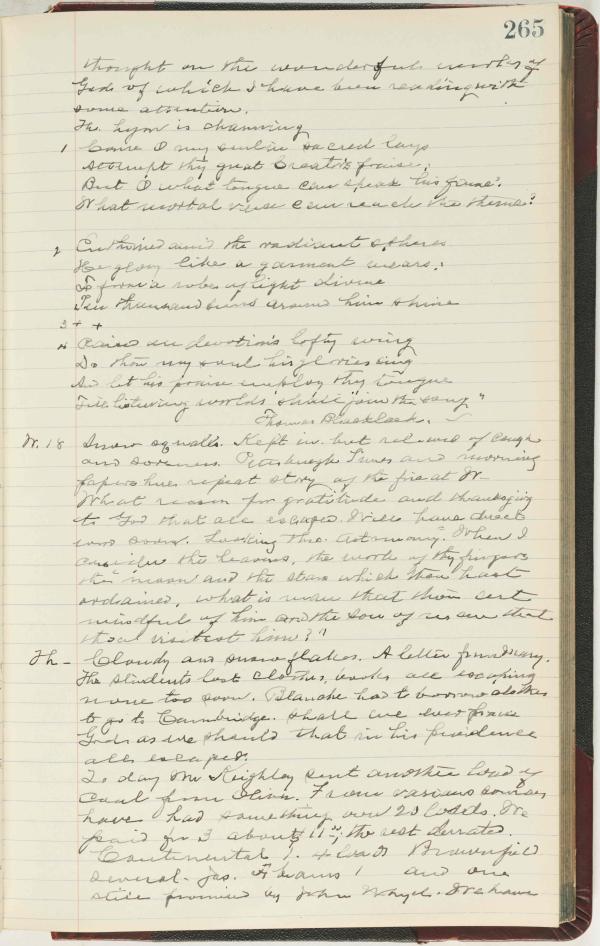 265
thought on the wonderful works of
God of which I have been reading with
some attention.
The hymn is charming
1 Come O my soul in sacred lays
Attempt thy great Creator's praise,
But O what tongue can speak his fame!
What mortal verse can reach the theme!
2 Enthroned amid the radiant spheres
He glory like a garment wears;
To form a robe of light divine
Ten thousand suns around him shine
3 + +
4 Raised on devotion's lofty wing
Do thou my soul his glories sing
And let his praise employ thy tongue
Till listening worlds shall join the song"
Thomas Blacklock.
W. 18 Snow squalls. Kept in but relieved of cough
and soreness. Pittsburgh Times and morning
papers have repeat story of the fire at W-
What reason for gratitude and thanksgiving
to God that all escaped. Will have direct
word soon. Looking thro. Astronomy. "When I
consider the heavens, the work of thy fingers
the moon and the stars which thou hast
ordained, what is man that thou art
mindful of him and the son of man that
thou visitest him?"
Th - Cloudy and snow flakes. A letter from Mary.
The students lost clothes, books all escaping
none too soon. Blanche had to borrow clothes
to go to Cambridge. Shall we ever praise
God as we should that in his providence
all escaped.
To day Mr Keighley sent another load of
coal from Oliver. From various sources
have had something over 20 loads. We
paid for 3 about $11 the rest donated.
Continental 1. 4 loads Brownfield
several - Jas. 1 and one
still promised by John Whyel. We have